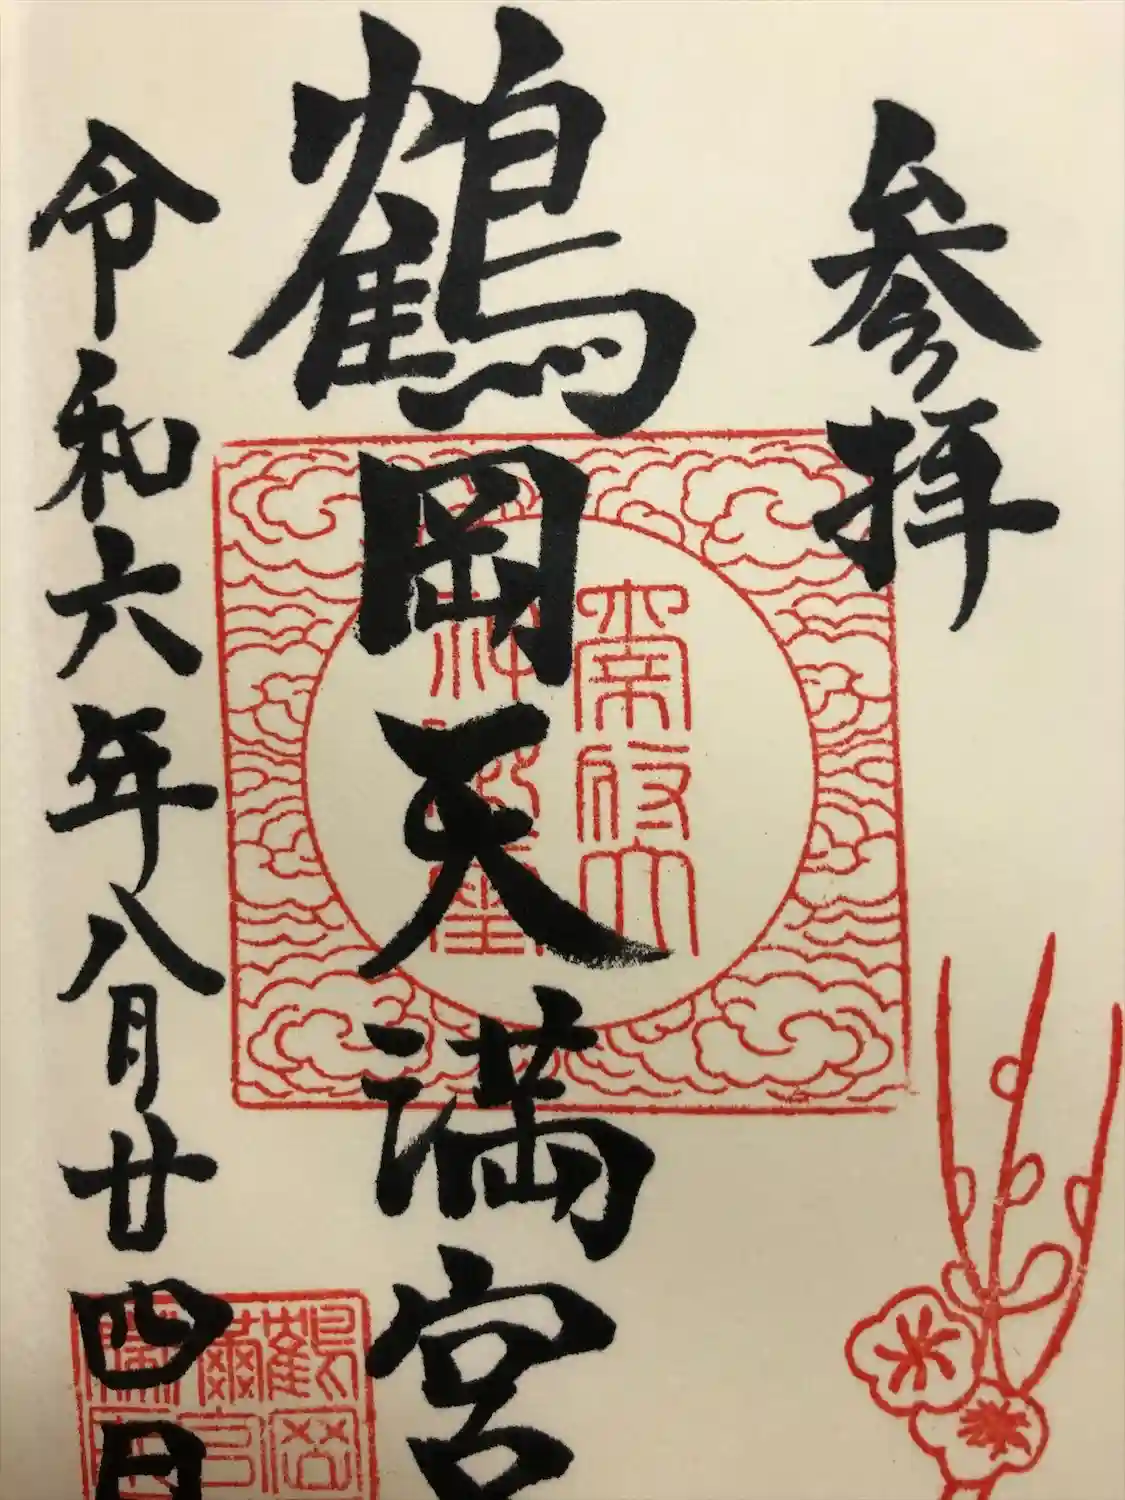 参拝
鶴岡天満宮
令和六年八月廿四日